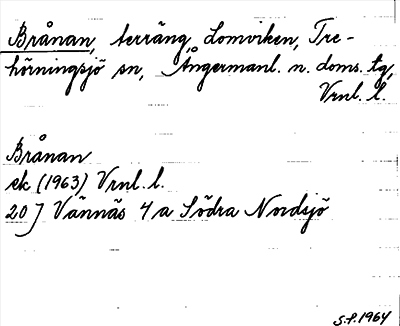 Brånan, terräng, Lomviken, Tre-
hörningsjö sn, Ångermanl. n. doms. tg,
Vrnl. l.
Brånan
ek (1963) Vrnl. l.
20 J Vännäs 4 a Södra Nordsjö
S.P. 1964